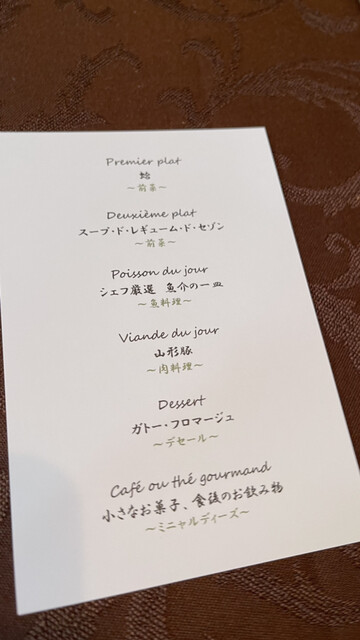 Premier plat
鮪
～前菜～
Deuxième plat
スープ・ド・レギューム・ド・セゾン
～前菜～
Poisson du jour
シェフ厳選 魚介の一皿
～魚料理～
Viande du jour
山形豚
～肉料理～
Dessert
ガトー・フロマージュ
～デセール～
Café ou thé gourmand
小さなお菓子、食後のお飲み物
～ミニャルディーズ～